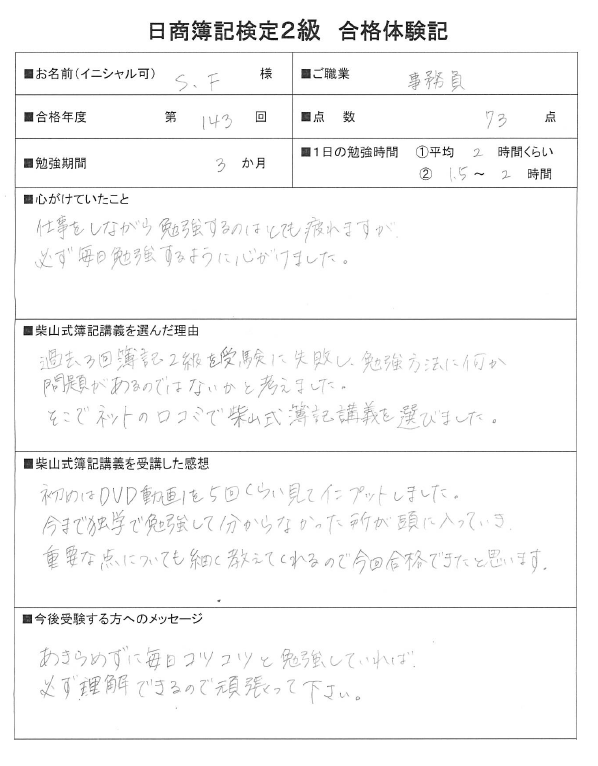 日商簿記検定2級 合格体験記
■お名前(イニシャル可) S.F 様
■ご職業 事務員
■合格年度 第 143 回
■点数 73 点
■勉強期間 3 か月
■1日の勉強時間 ①平均 2 時間くらい
② 1.5～2 時間
■心がけていたこと
仕事をしながら勉強するのはとても疲れますが、
必ず毎日勉強するように心がけました。
■柴山式簿記講義を選んだ理由
過去3回簿記2級を受験に失敗し、勉強方法に何か
問題があるのではないかと考えました。
そこでネットの口コミで柴山式簿記講義を選びました。
■柴山式簿記講義を受講した感想
初めはDVD動画を5回くらい見てインプットしました。
今まで独学で勉強して分からなかった所が頭に入っていき、
重要な点についても細く教えてくれるので今回合格できたと思います。
■今後受験する方へのメッセージ
あきらめずに毎日コツコツと勉強していれば、
必ず理解できるので頑張って下さい。